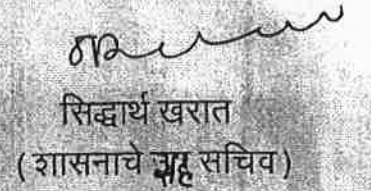 सिद्धार्थ खरात
(शासनाचे सह सचिव)